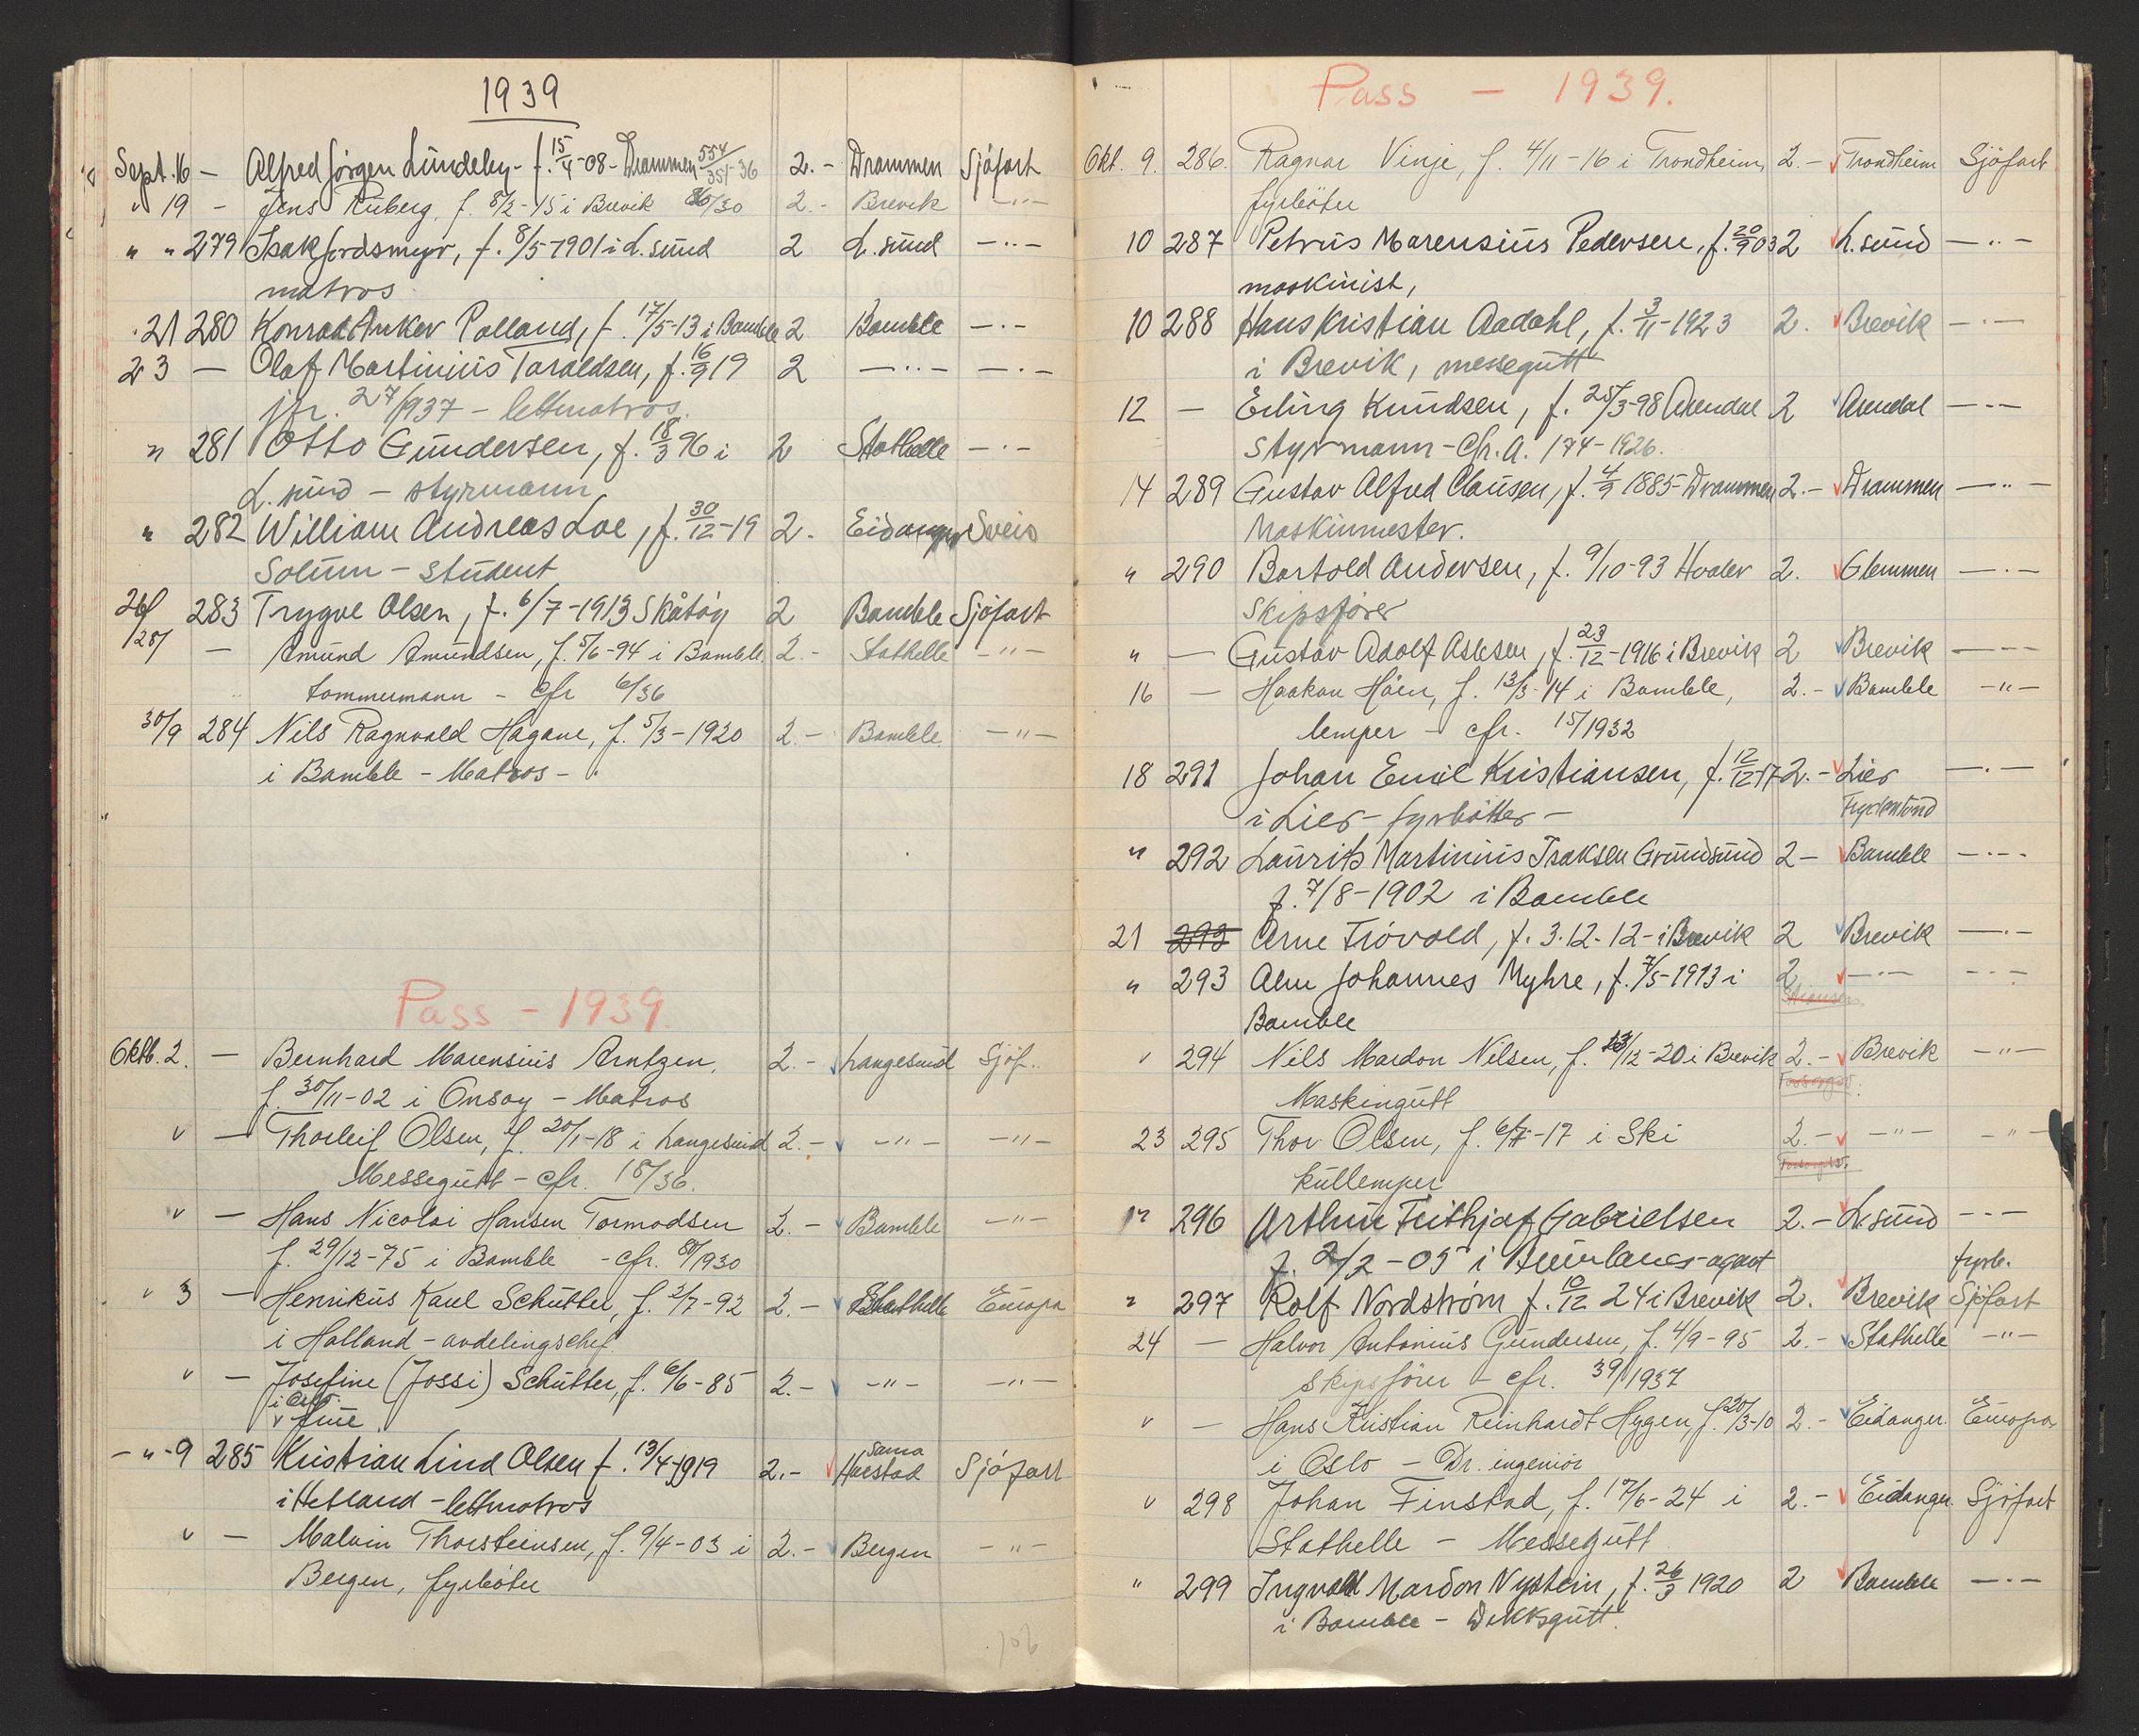 1939
Sept. 16 — Alfred Jörgen Lundeby - f. 15/4-08 - Drammen 554/351-36 2.- Drammen Sjöfart
" 19 - Jens Ruberg, f. 8/2-15 i Brevik 36/30 2.- Brevik -"-
" " 279 Isak Jordsmyr, f. 8/5-1901 i L.sund 2 L.sund -"-
matros
21 280 Konrad Anker Polland, f. 17/5-13 i Bamble 2 Bamble -"-
23 — Olaf Martinius Taraldsen, f. 16/9 19 2 -"- -"-
jfr. 27/1937 - lettmatros.
" 281 Otto Gundersen, f. 18/3 96 i 2 Stathelle -"-
L.sund - styrmann
" 282 William Andreas Loe, f. 30/12-19 2.- Eidanger Sveis
Solum - student
26/ 283 Trygve Olsen, f. 6/7-1913 Skåtöy 2 Bamble Sjöfart
28/ — Amund Amundsen, f. 5/6-94 i Bamble 2.- Stathelle -"-
tømmermann - cfr 6/36
30/9 284 Nils Ragnvald Hagane, f. 5/3-1920 2.- Bamble -"-
i Bamble - Matros -
Pass - 1939
Oktb. 2. — Bernhard Marensius Arntzen, 2.- Langesund Sjöf..
f. 30/11-02 i Onsøy - Matros
" — Thorleif Olsen, f. 20/1-18 i Langesund 2.- -"- -"-
Messegutt - cfr. 18/36.
" — Hans Nicolai Hansen Tormodsen 2.- Bamble -"-
f. 29/12-75 i Bamble - cfr. 80/1930
" 3 — Henrikus Karel Schutter, f. 2/7-92 2.- Stathelle Europa
i Holland - avdelingschef
" — Josefine (Jossi) Schutter, f. 6/6-85 2.- -"- -"-
i Oslo.
v frue
-"- 9 285 Kristian Lind Olsen f. 13/4-1919 2.- Harstad Sjöfart
i Hetland - lettmatros
" — Malvin Thorsteinsen, f. 9/4-03 i 2.- Bergen -"-
Bergen, fyrböter
Pass - 1939.
Okt. 9. 286. Ragnar Vinje, f. 4/11-16 i Trondheim, 2.- Trondheim Sjöfart
fyrböter
10 287 Petrus Marensius Pedersen, f. 20/9 03 2 L.sund -"-
maskinist,
10 288 Hans Kristian Aadahl, f. 3/11-1923 2. Brevik -"-
i Brevik, messegutt
12 — Erling Knudsen, f. 25/3-98 Arendal 2 Arendal -"-
Styrmann - Cfr. A. 174-1926.
14 289 Gustav Alfred Clausen, f. 4/9 1885 - Drammen 2.- Drammen -"-
Maskinmester.
" 290 Bartold Andersen, f. 9/10-93 Hvaler 2. Glemmen -"-
Skipsfører
" — Gustav Adolf Aslesen, f. 23/12-1916 i Brevik 2 Brevik -"-
16 — Haakon Häen, f. 13/3-14 i Bamble, 2.- Bamble -"-
lemper - cfr. 15/1932
18 291 Johan Emil Kristiansen, f. 12/12-17 2.- Lier -"-
i Lier - fyrbötter -
" 292 Laurits Martinius Isaksen Grundsund 2- Bamble -"-
f. 7/8-1902 i Bamble
21 293 Arne Trövold, f. 3.12.12- i Brevik 2 Brevik -"-
" 293 Alm Johannes Myhre, f. 7/5-1913 i 2 -"- -"-
Bamble
" 294 Nils Mardon Nilsen, f. 23/12-20 i Brevik 2.- Brevik -"-
Maskingutt
23 295 Thor Olsen, f. 6/7-17 i Ski 2.- -"- -"-
kullemper
" 296 Arthur Frithjof Gabrielsen 2.- L.sund -"-
" 297 Rolf Nordström f. 10/12 24 i Brevik 2. Brevik Sjöfart
24 — Halvor Antonius Gundersen, f. 4/9-95 2.- Stathelle -"-
Skipsförer - cfr. 39/1937
" — Hans Kristian Reinhardt Hygen, f. 20/3-10 2.- Eidanger Europa
i Oslo - Dr. ingeniör
" 298 Johan Finstad, f. 17/6-24 i 2.- Eidanger Sjöfart
Stathelle - Messegutt
" 299 Ingvald Mardon Nystein, f. 26/3 1920 2 Bamble -"-
i Bamble - Dekksgutt.